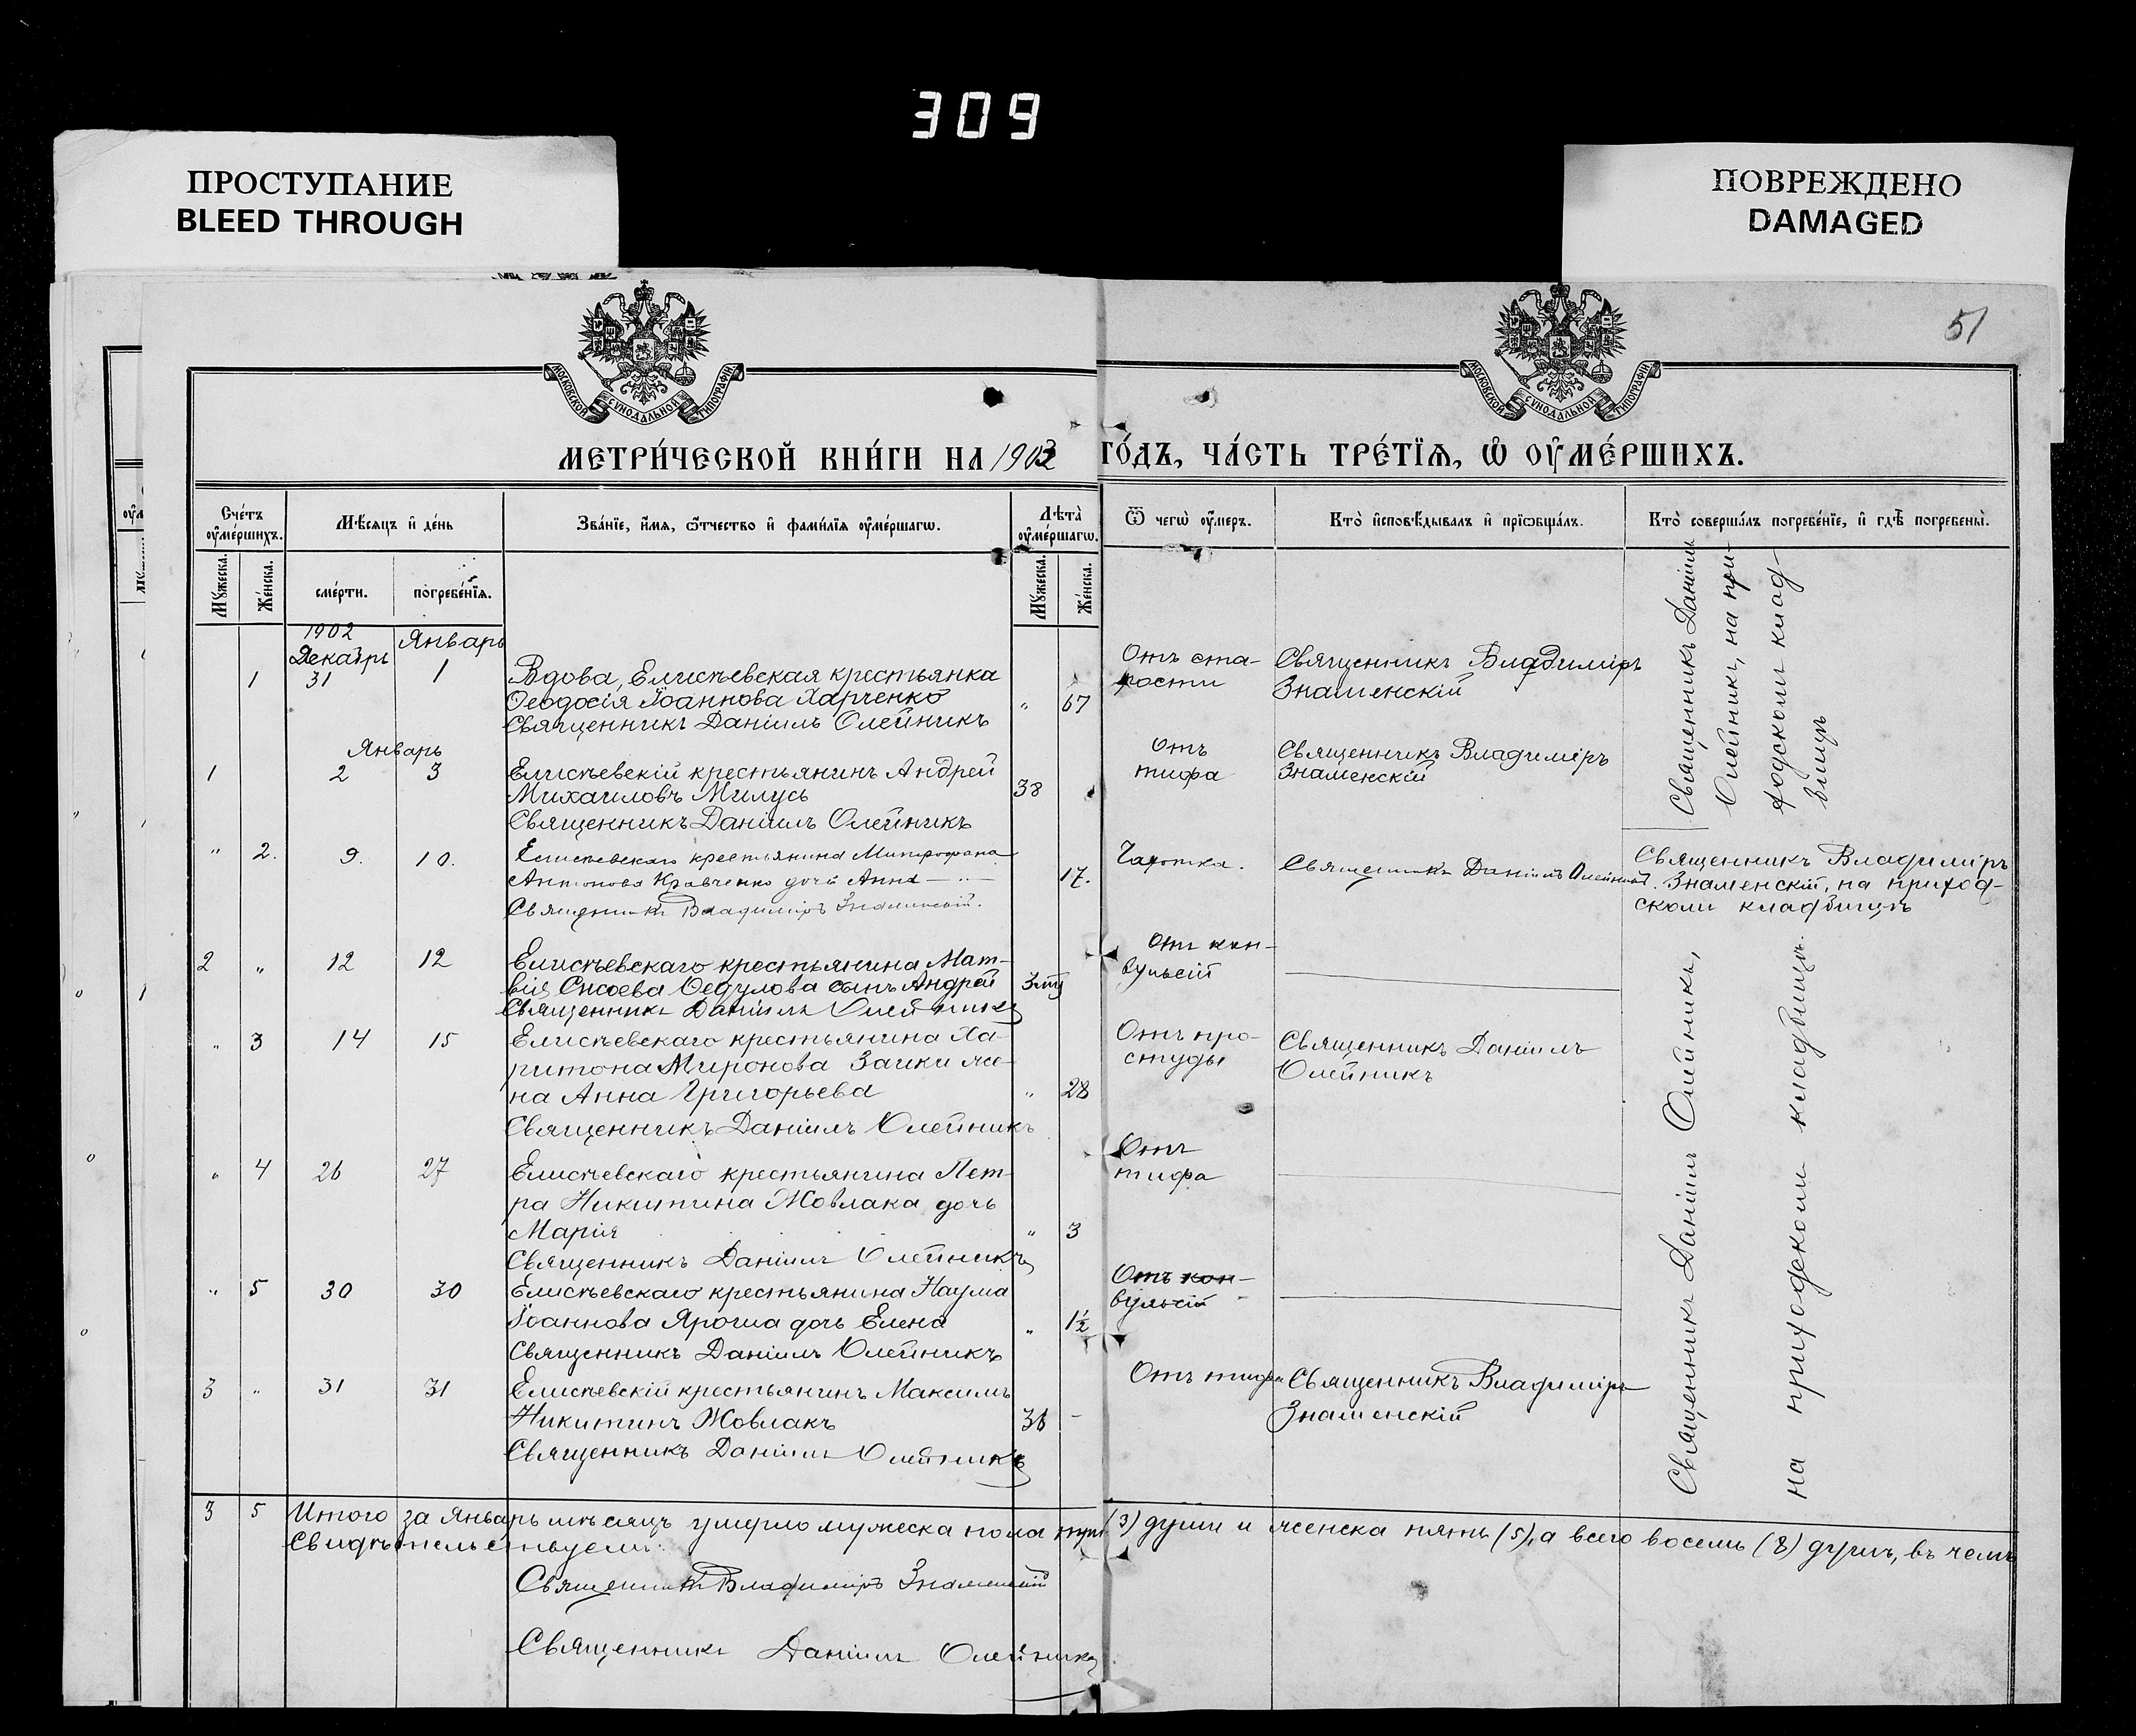 309
ПРОСТУПАНИЕ
BLEED THROUGH
ПОВРЕЖДЕНО
DAMAGED
МОСКОВСКОЙ СѴНОДАЛЬНОЙ ТИПОГРАФІИ
МОСКОВСКОЙ СѴНОДАЛЬНОЙ ТИПОГРАФІИ
51
МЕТРИ́ЧЕСКОЙ КНИ́ГИ НА 1903 ГО́ДЪ, ЧА́СТЬ ТРЕ́ТЇѦ, Ѡ҆ ОУ҆МЕ́РШИХЪ.
Сче́тъ оу҆ме́ршихъ.
Мѣ́сяцъ и҆ де́нь
Зва́нїе, и҆́мя, ѻ҆́тчество и҆ фами́лїя оу҆ме́ршагѡ.
Лѣта̀ оу҆ме́ршагѡ.
Ѿ чегѡ̀ оу҆́меръ.
Кто̀ и҆сповѣ́дывалъ и҆ прїѡбща́лъ.
Кто̀ соверша́лъ погребе́нїе, и҆ гдѣ̀ погребены̀.
Мꙋ́жеска.
Же́нска.
сме́рти.
погребе́нїя.
Мꙋ́жеска.
Же́нска.
1902
Декабрь Январь
1 31 1 Вдова, Елисѣевская крестьянка
Ѳеодосія Іоаннова Харченко " 67
Священникъ Даніилъ Олейникъ
Отъ ста-
рости
Священникъ Владиміръ
Знаменскій
Священникъ Даніилъ
Олейникъ, на при-
ходскомъ клад-
бищѣ
Январь
1 2 3 Елисѣевскій крестьянинъ Андрей
Михаиловъ Милусь 38
Священникъ Даніилъ Олейникъ
Отъ
тифа
Священникъ Владиміръ
Знаменскій
" 2. 9. 10. Елисѣевскаго крестьянина Митрофана
Антонова Кравченко дочь Анна 17.
Священникъ Владиміръ Знаменскій.
Чахотка.
Священникъ Даніилъ Олейникъ.
Священникъ Владиміръ
Знаменскій, на приход-
скомъ кладбищѣ
2 " 12 12 Елисѣевскаго крестьянина Мат-
вія Сысоева Ѳедулова сынъ Андрей 3
Священникъ Даніилъ Олейникъ
Отъ кон-
вульсій
" 3 14 15 Елисѣевскаго крестьянина Ха-
ритона Миронова Заики же-
на Анна Григорьева " 28
Священникъ Даніилъ Олейникъ
Отъ про-
студы
Священникъ Даніилъ
Олейникъ
" 4 26 27 Елисѣевскаго крестьянина Пет-
ра Никитина Жовлака дочь
Марія " 3
Священникъ Даніилъ Олейникъ
Отъ
тифа
" 5 30 30 Елисѣевскаго крестьянина Наума
Іоаннова Яроша дочь Елена " 1½
Священникъ Даніилъ Олейникъ
Отъ кон-
вульсій
3 " 31 31 Елисѣевскій крестьянинъ Максимъ
Никитинъ Жовлакъ 36 -
Священникъ Даніилъ Олейникъ
Отъ тифа
Священникъ Владиміръ
Знаменскій
Священникъ Даніилъ Олейникъ,
на приходскомъ кладбищѣ.
3 5 Итого за Январь мѣсяцъ умерло мужеска пола три (3) души и женска пять (5), а всего восемь (8) душъ, въ чемъ
Свидѣтельствуемъ:
Священникъ Владиміръ Знаменскій
Священникъ Даніилъ Олейникъ